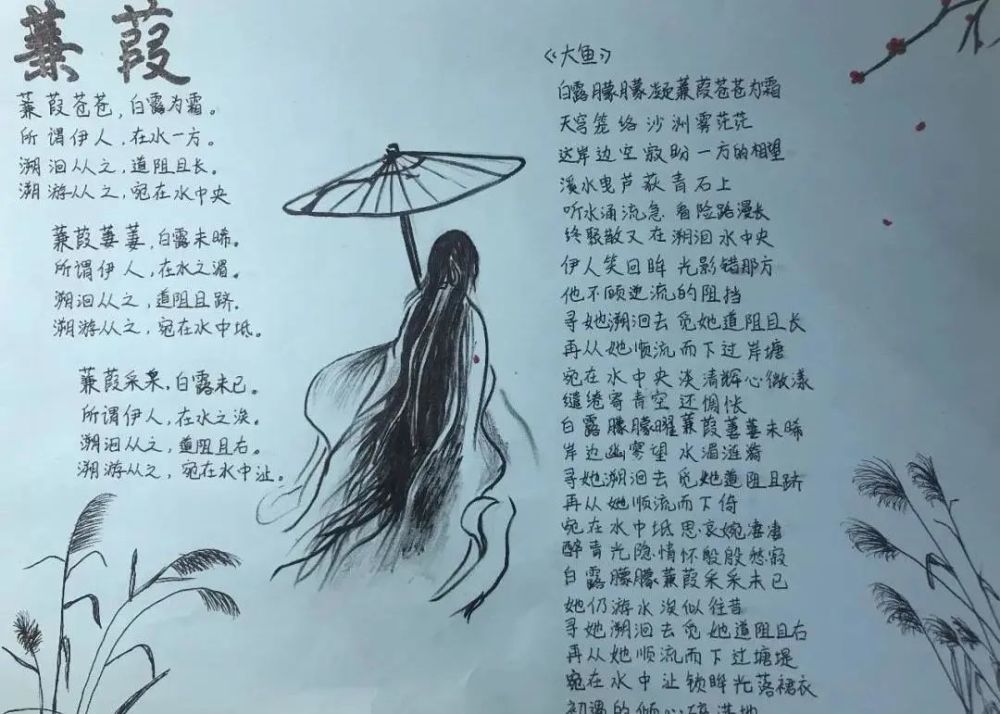 蒹葭
蒹葭苍苍，白露为霜。
所谓伊人，在水一方。
溯洄从之，道阻且长。
溯游从之，宛在水中央
蒹葭萋萋，白露未晞。
所谓伊人，在水之湄。
溯洄从之，道阻且跻．
溯游从之，宛在水中坻。
蒹葭采采，白露未已。
所谓伊人，在水之涘。
溯洄从之，道阻且右。
溯游从之，宛在水中沚。
《大鱼》
白露朦朦凝蒹葭苍苍为霜
天穹笼络沙洲雾茫茫
这岸边空寂盼一方的相望
溪水曳芦荻青石上
听水涌流急看险路漫长
终聚散又在溯洄水中央
伊人笑回眸光影错那方
他不顾逆流的阻挡
寻她溯洄去觅她道阻且长
再从她顺流而下过岸塘
宛在水中央淡清辉心微漾
缱绻寄青空还惆怅
白露朦朦曜蒹葭萋萋未晞
岸边幽雾望水湄涟漪
寻她溯洄去觅她道阻且跻
再从她顺流而下倚
宛在水中坻思哀婉凄凄
醉青光隐情怀殷殷愁寂
白露朦朦蒹葭采采未已
她仍游水涘似往昔
寻她溯洄去觅她道阻且右
再从她顺流而下过塘堤
宛在水中沚锁眸光落裙衣
初遇的倾心碎满地